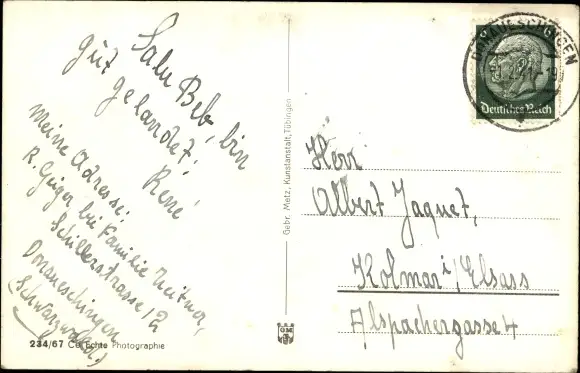 Salu Beb, bin
gut gelandet.
René
meine Adresse:
R. Geiger bei Familie
Schillerstrasse 12
Donaueschingen
(Schwarzwald)
234/67 Echte Photographie
Gebr. Metz, Kunstanstalt, Tübingen
GMT
DONAUESCHINGEN
Deutsches Reich
Herr
Albert Jaquet,
Kolmar i/Elsass
Alspachergasse 4